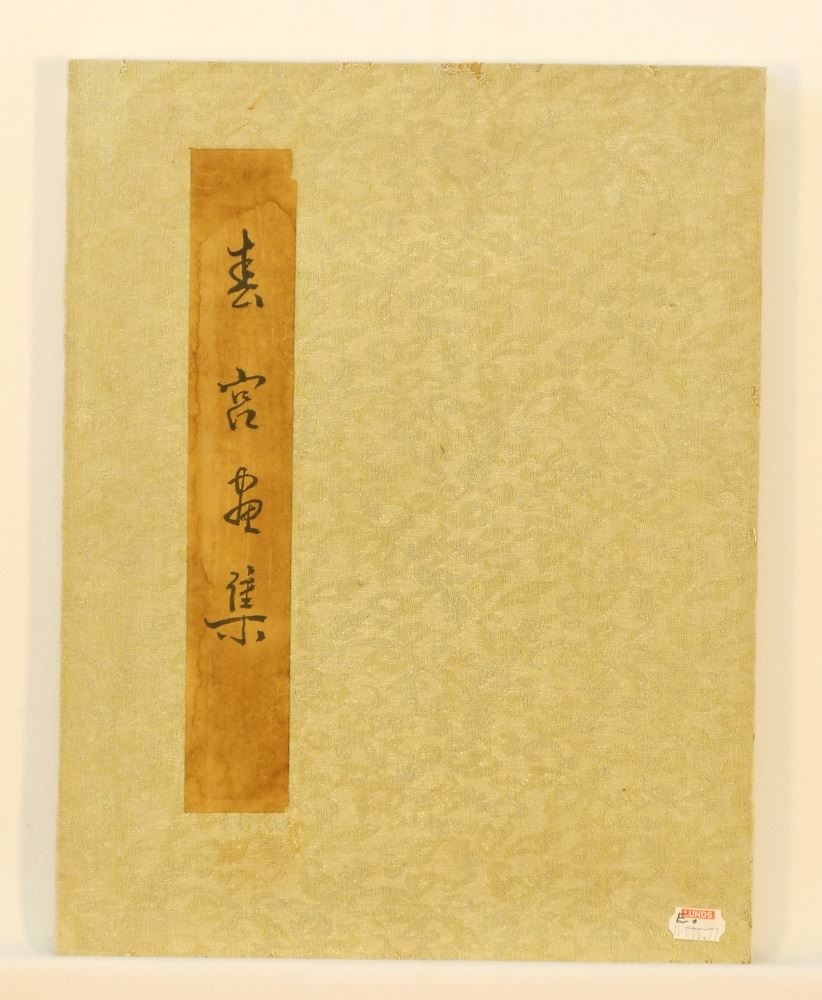 春宫畫集
LUNDS
E.